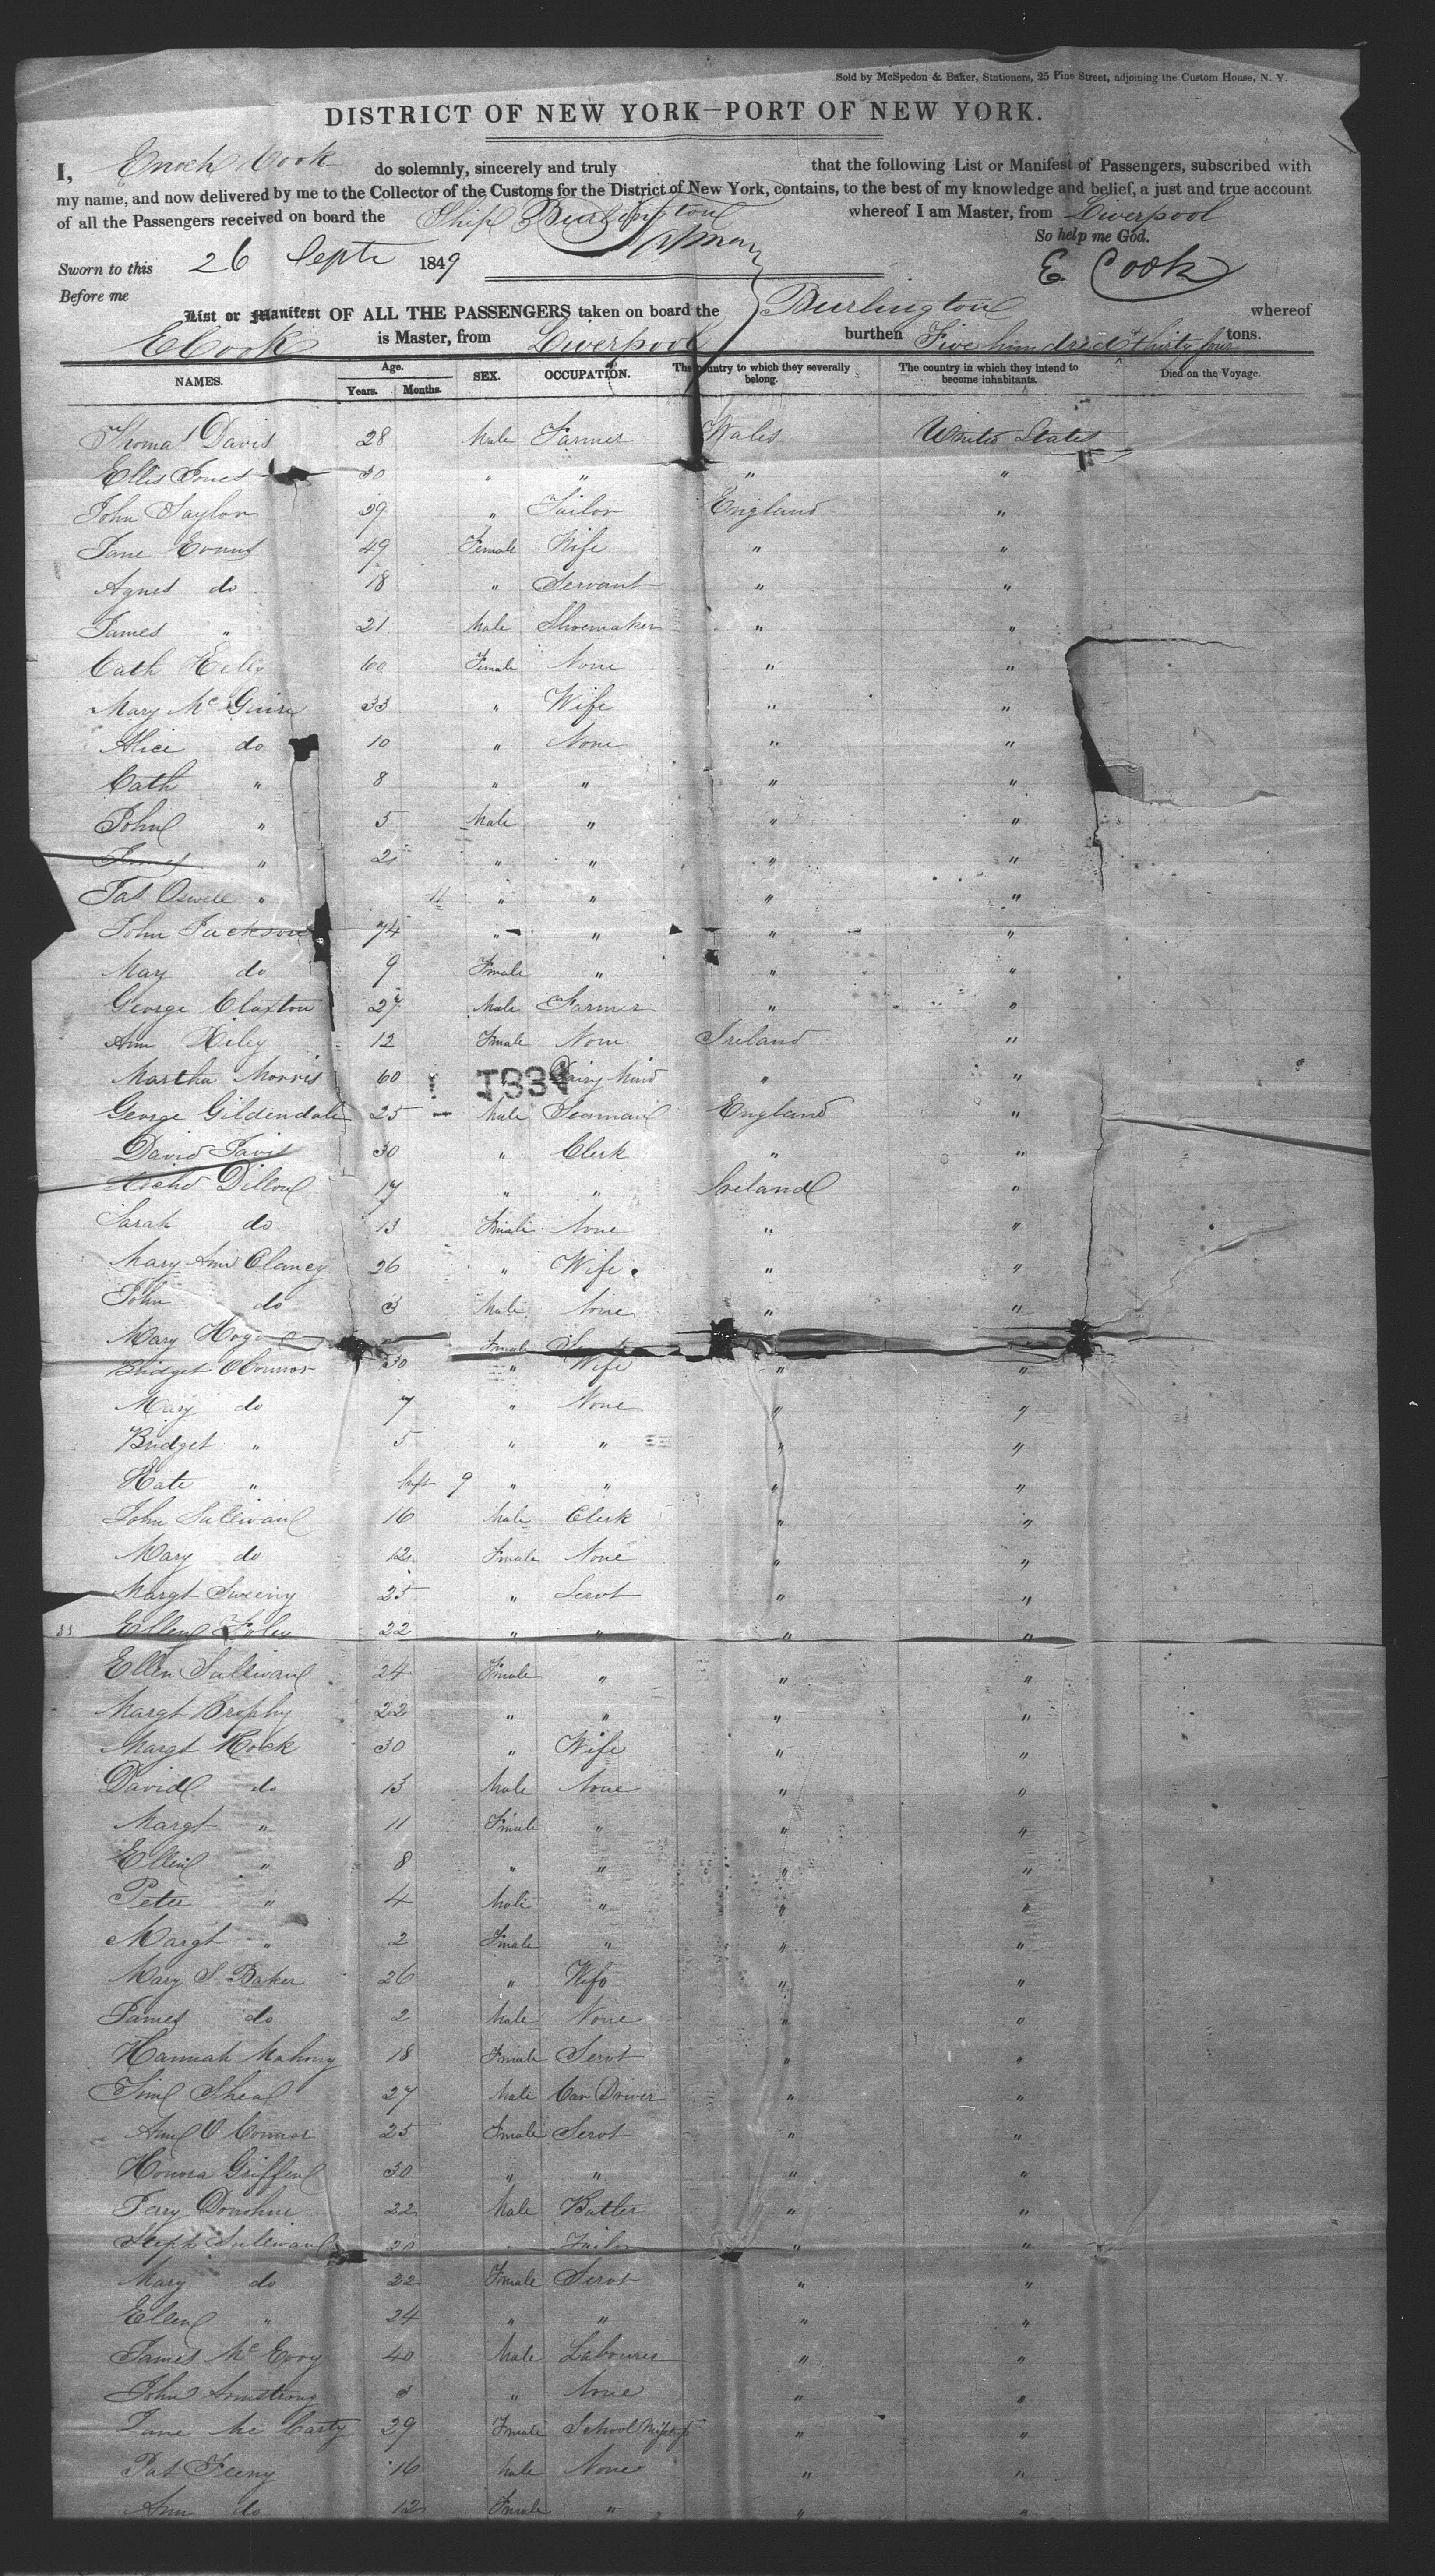 Sold by McSpedon & Baker, Stationers, 25 Pine Street, adjoining the Custom House, N. Y.
DISTRICT OF NEW YORK—PORT OF NEW YORK.
I, Enoch Cook do solemnly, sincerely and truly that the following List or Manifest of Passengers, subscribed with
my name, and now delivered by me to the Collector of the Customs for the District of New York, contains, to the best of my knowledge and belief, a just and true account
of all the Passengers received on board the Ship Burlington whereof I am Master, from Liverpool
So help me God.
Sworn to this 26 Septr 1849 E. Cook
Before me
List or Manifest OF ALL THE PASSENGERS taken on board the Burlington whereof
E Cook is Master, from Liverpool burthen Five hundred & thirty four tons.
NAMES. Age. Years. Months. SEX. OCCUPATION. The country to which they severally belong. The country in which they intend to become inhabitants. Died on the Voyage.
Thomas Davis 28 Male Farmer Wales United States
Ellis Jones 30 " " " "
John Taylor 29 " Tailor England "
Jane Evans 49 Female Wife " "
Agnes do 18 " Servant " "
James " 21 Male Shoemaker " "
Cath 60 Female None " "
Mary McGuire 33 " Wife " "
Alice do 10 " None " "
Cath " 8 " " " "
John " 5 Male " " "
James " 2 " " " "
" 11 " " " "
John Jackson 74 " " " "
Mary do 9 Fmale " " "
George Claxton 27 Male Farmer " "
Ann 12 Fmale None Ireland "
Martha Morris 60 Dairy Maid " "
George Gildendale 25 Male Seaman England "
David 30 " Clerk " "
Dillon 17 " " Ireland "
Sarah do 13 Fmale None " "
Mary Ann Clancy 26 " Wife " "
John do 3 Male None " "
Mary Fmale
Bridget OConnor 30 " Wife " "
Mary do 7 " None " "
Bridget " 5 " " " "
Kate " Inft 9 " " " "
John Sullivan 16 Male Clerk " "
Mary do 12 Fmale None " "
Margt Sweeny 25 " Servt " "
Ellen Foley 22 " " " "
Ellen Sullivan 24 Fmale " " "
Margt Brophy 22 " " " "
Margt 30 " Wife " "
David do 13 Male None " "
Margt " 11 Fmale " " "
Ellen " 8 " " " "
Peter " 4 Male " " "
Margt " 2 Fmale " " "
Mary S. Baker 26 " Wife " "
James do 2 Male None " "
Hannah Mahony 18 Fmale Servt " "
Tim Shea 27 Male Car Driver " "
Ann O Connor 25 Fmale Servt " "
Honora Griffin 30 " " " "
Jerry Donohue 22 Male Butler " "
Steph Sullivan 20 Tailor " "
Mary do 22 Fmale Servt " "
Ellen " 24 " " " "
James McEvoy 40 Male Labourer " "
John Armstrong 3 " None " "
Jane McCarty 29 Fmale School " "
Pat Feeny 16 Male None " "
Ann do 12 Fmale " " "